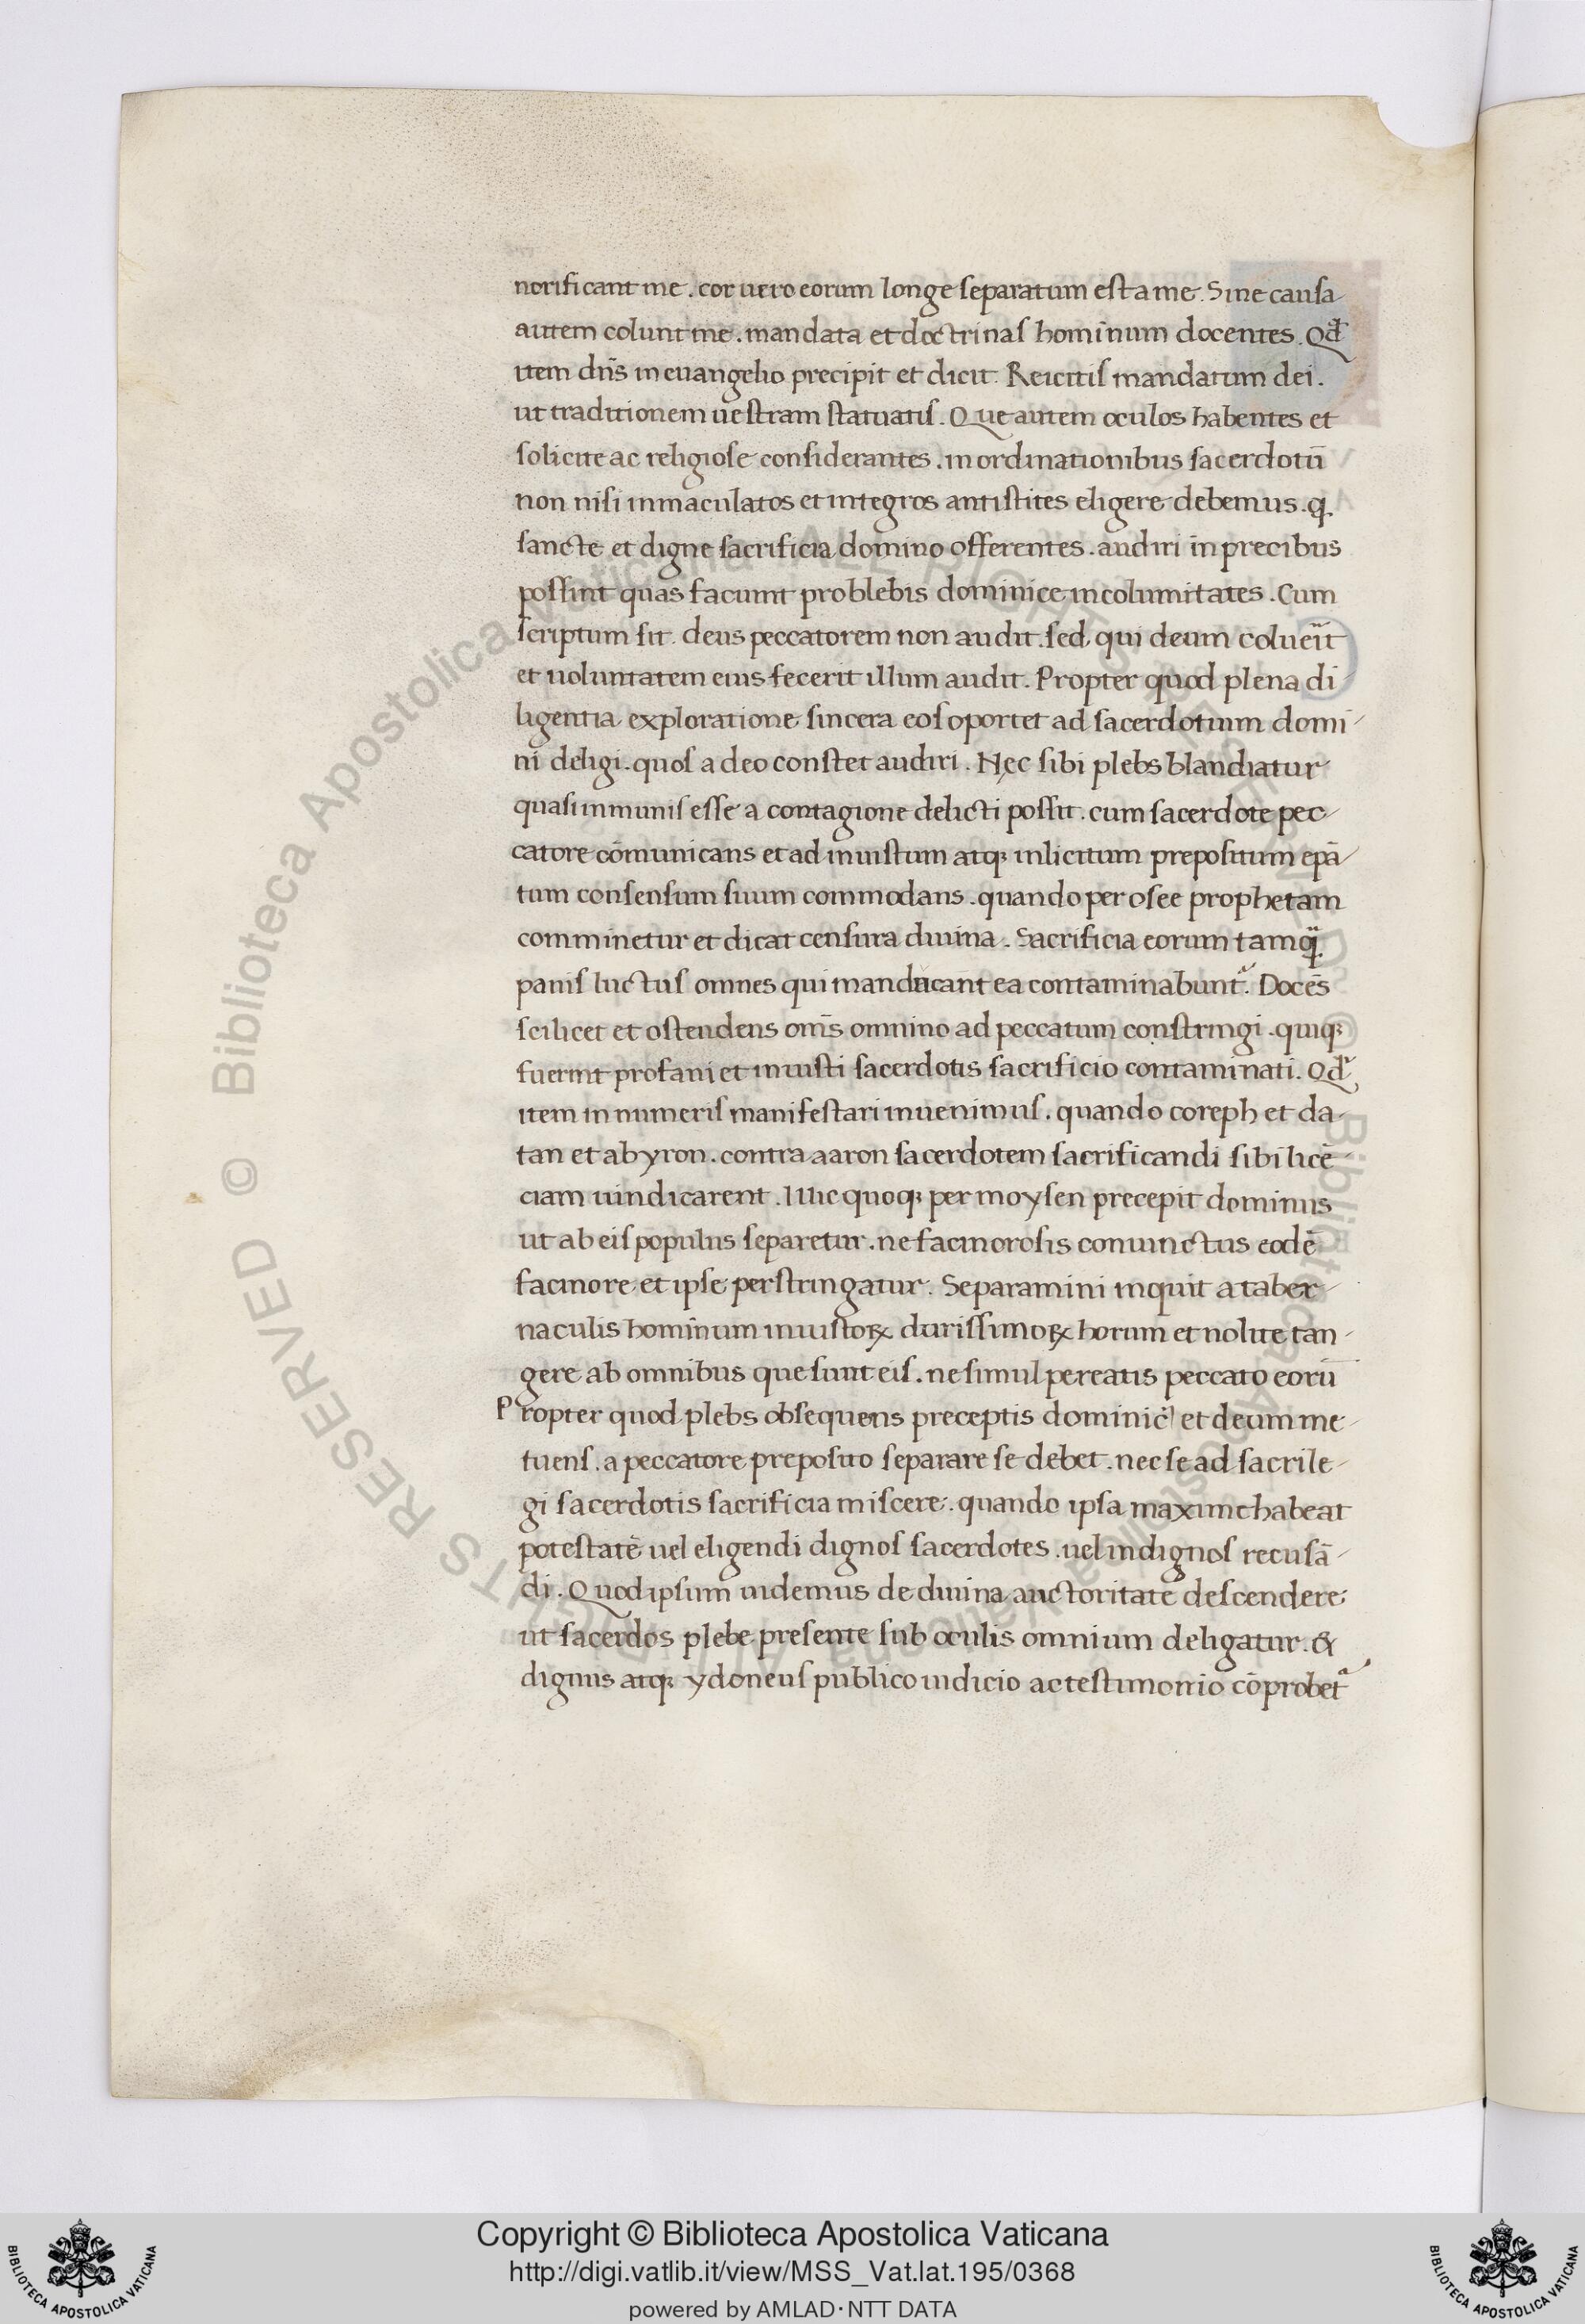 norificant me . cor uero eorum longe separatum est a me . Sine causa
autem colunt me . mandata et doctrinas hominum docentes . Qđ
item dñs in euangelio precipit et dicit . Reicitis mandatum dei .
ut traditionem uestram statuatis . Que autem oculos habentes et
solicite ac religiose considerantes . in ordinationibus sacerdotū
non nisi inmaculatos et integros antistites eligere debemus . q
sancte et digne sacrificia domino offerentes . audiri in precibus
possint quas faciunt pro blebis dominice incolumitates . Cum
scriptum sit . deus peccatorem non audit . sed qui deum colueit
et uoluntatem eius fecerit illum audit . Propter quod plena di
ligentia exploratione sincera eos oportet ad sacerdotium domi
ni deligi . quos a deo constet audiri . Nec sibi plebs blandiatur
quasi inmunis esse a contagione delicti possit . cum sacerdote pec
catore cōmunicans et ad iniustum atq; inlicitum prepositum epā
tum consensum suum commodans . quando per osee prophetam
comminetur et dicat censura diuina . Sacrificia eorum tamq̃
panis luctus omnes qui manducant ea contaminabunt᷑ . Docēs
scilicet et ostendens om̄s omnino ad peccatum constringi . quiq;
fuerint profani et iniusti sacerdotis sacrificio contaminati . Qđ
item in numeris manifestari inuenimus . quando coreph et da
tan et abyron . contra aaron sacerdotem sacrificandi sibi licē
ciam uindicarent . Illic quoq; per moysen precepit dominus
ut ab eis populus separetur . ne facinorosis coniunctus eodē
facinore et ipse perstringatur . Separamini inquit a taber
naculis hominum iniustoꝝ durissimoꝝ horum et nolite tan
gere ab omnibus que sunt eis . ne simul pereatis peccato eorū
Propter quod plebs obsequens preceptis dominic̓ et deum me
tuens . a peccatore preposito separare se debet . nec se ad sacrile
gi sacerdotis sacrificia miscere . quando ipsa maxime habeat
potestatē uel eligendi dignos sacerdotes . uel indignos recusā
di . Quod ipsum uidemus de diuina auctoritate descendere
ut sacerdos plebe presente sub oculis omnium deligatur . &
dignus atq; ydoneus publico iudicio ac testimonio cōprobet᷑
Biblioteca Apostolica Vaticana ALL RIGHTS RESERVED © Biblioteca Apostolica Vaticana ALL RIGHTS RESERVED ©
BIBLIOTECA APOSTOLICA VATICANA
Copyright © Biblioteca Apostolica Vaticana
http://digi.vatlib.it/view/MSS_Vat.lat.195/0368
powered by AMLAD·NTT DATA
BIBLIOTECA APOSTOLICA VATICANA